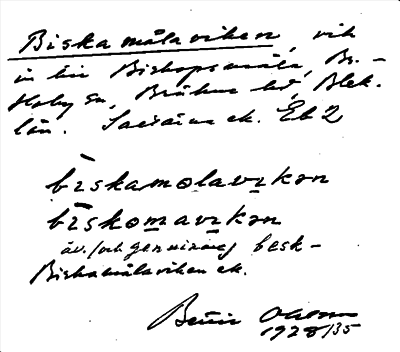 Biskamålaviken, vik
in till Biskopsmåla, Br.-
Hoby sn, Bräkne hd, Blek.
län. ek. Eb 2
bīskamolavɪkən
bīskomavɪkən
äv. (och genuinare) besk-
Biskamålaviken ek.
1928/35